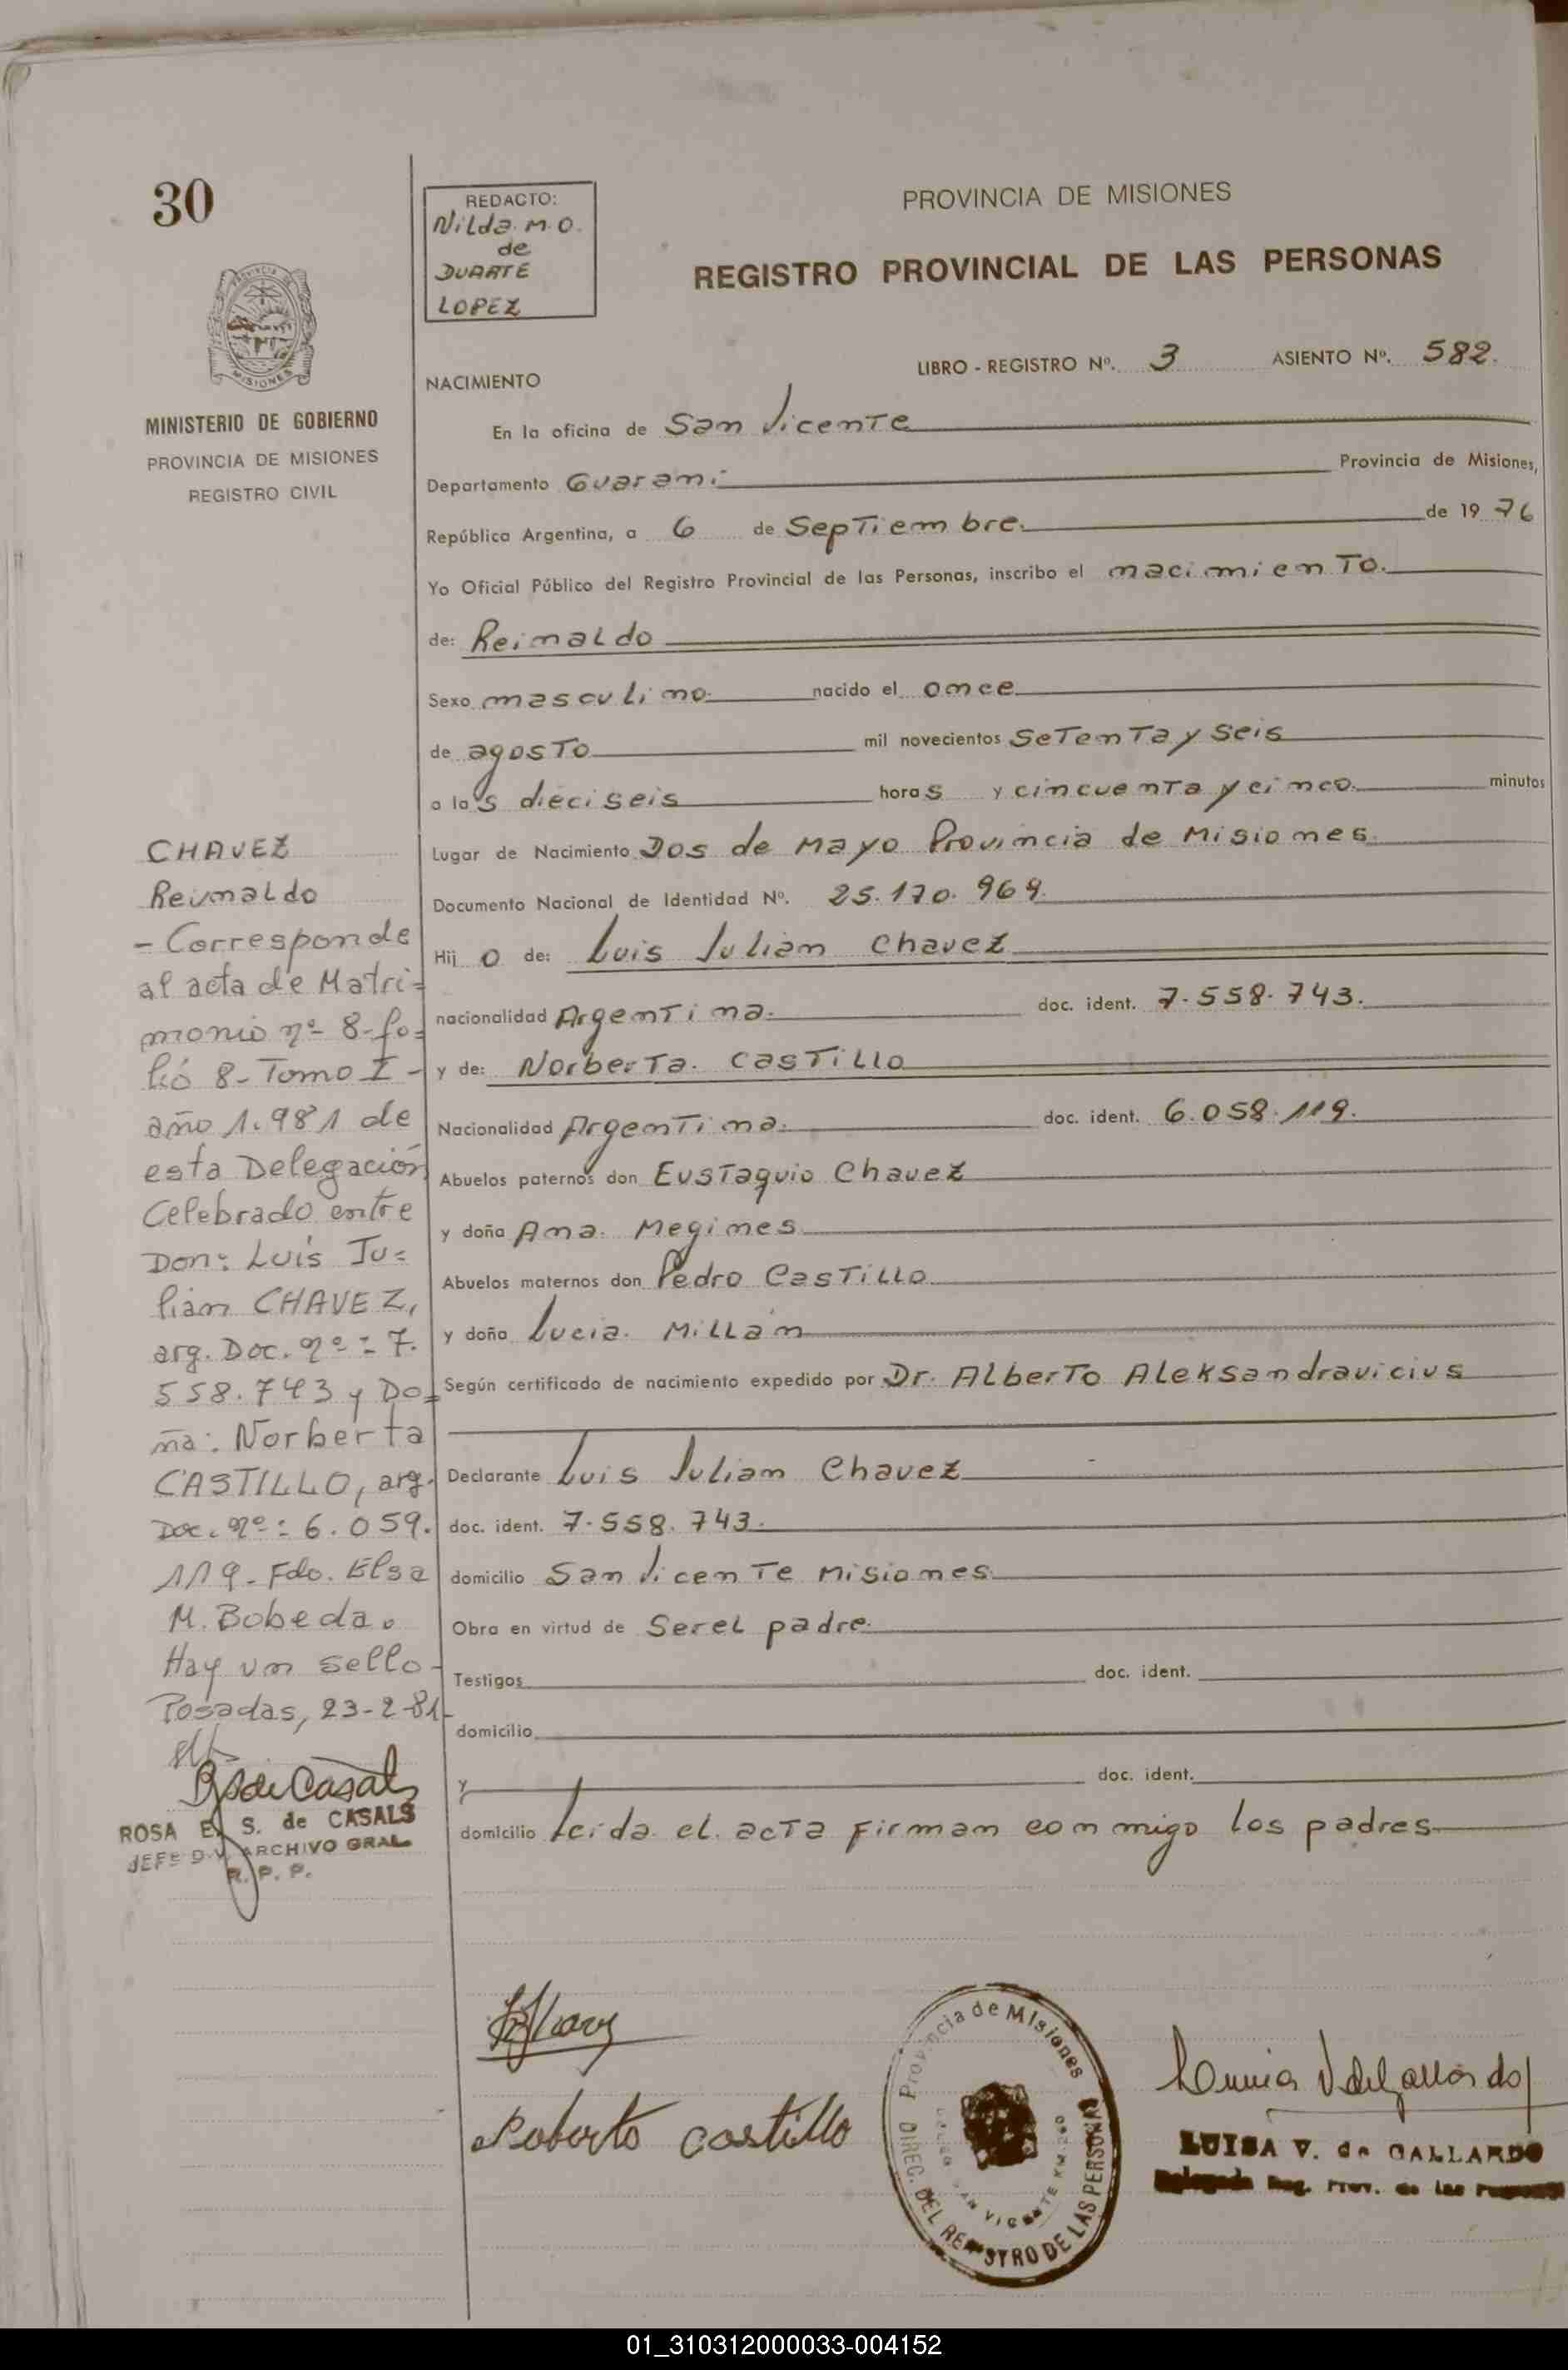 30
PROVINCIA DE MISIONES
MINISTERIO DE GOBIERNO
PROVINCIA DE MISIONES
REGISTRO CIVIL
REDACTO:
Nilda M.O.
de
DUARTE
LOPEZ
PROVINCIA DE MISIONES
REGISTRO PROVINCIAL DE LAS PERSONAS
LIBRO - REGISTRO Nº. 3 ASIENTO Nº. 582.
NACIMIENTO
En la oficina de San Vicente
Departamento Guaraní Provincia de Misiones,
República Argentina, a 6 de Septiembre. de 1976
Yo Oficial Público del Registro Provincial de las Personas, inscribo el nacimiento.
de: Reinaldo
Sexo masculino. nacido el once
de agosto mil novecientos setenta y seis
a las dieciseis horas y cincuenta y cinco. minutos
Lugar de Nacimiento Dos de Mayo Provincia de Misiones.
Documento Nacional de Identidad Nº. 25.170.969.
Hijo de: Luis Julian Chavez
nacionalidad Argentina. doc. ident. 7.558.743.
y de: Norberta. Castillo
Nacionalidad Argentina. doc. ident. 6.058.119.
Abuelos paternos don Eustaquio Chavez
y doña Ana. Megines
Abuelos maternos don Pedro Castillo
y doña Lucia. Millán
Según certificado de nacimiento expedido por Dr. Alberto Aleksandravicius
Declarante Luis Julian Chavez
doc. ident. 7.558.743.
domicilio San Vicente Misiones.
Obra en virtud de Ser el padre.
Testigos doc. ident.
domicilio
y doc. ident.
domicilio Leida el acta firman conmigo los padres
CHAVEZ
Reinaldo
- Corresponde
al acta de Matri=
monio nº 8-fo=
lio 8-Tomo I-
año 1.981 de
esta Delegación
Celebrado entre
Don: Luis Ju=
lian CHAVEZ,
arg. Doc. nº: 7.
558.743 y Do=
ña: Norberta
CASTILLO, arg.
Doc. nº: 6.059.
119-Fdo. Elsa
M. Bobeda.
Hay un sello-
Posadas, 23-2-81-
de Casals
ROSA E. S. de CASALS
JEFE DIV. ARCHIVO GRAL.
R. P. P.
Roberto Castillo
Provincia de Misiones
DIREC. DEL REGISTRO DE LAS PERSONAS
SAN VICENTE KM.
LUISA V. de GALLARDO
Delegada Reg. Prov. de las Personas
01_310312000033-004152